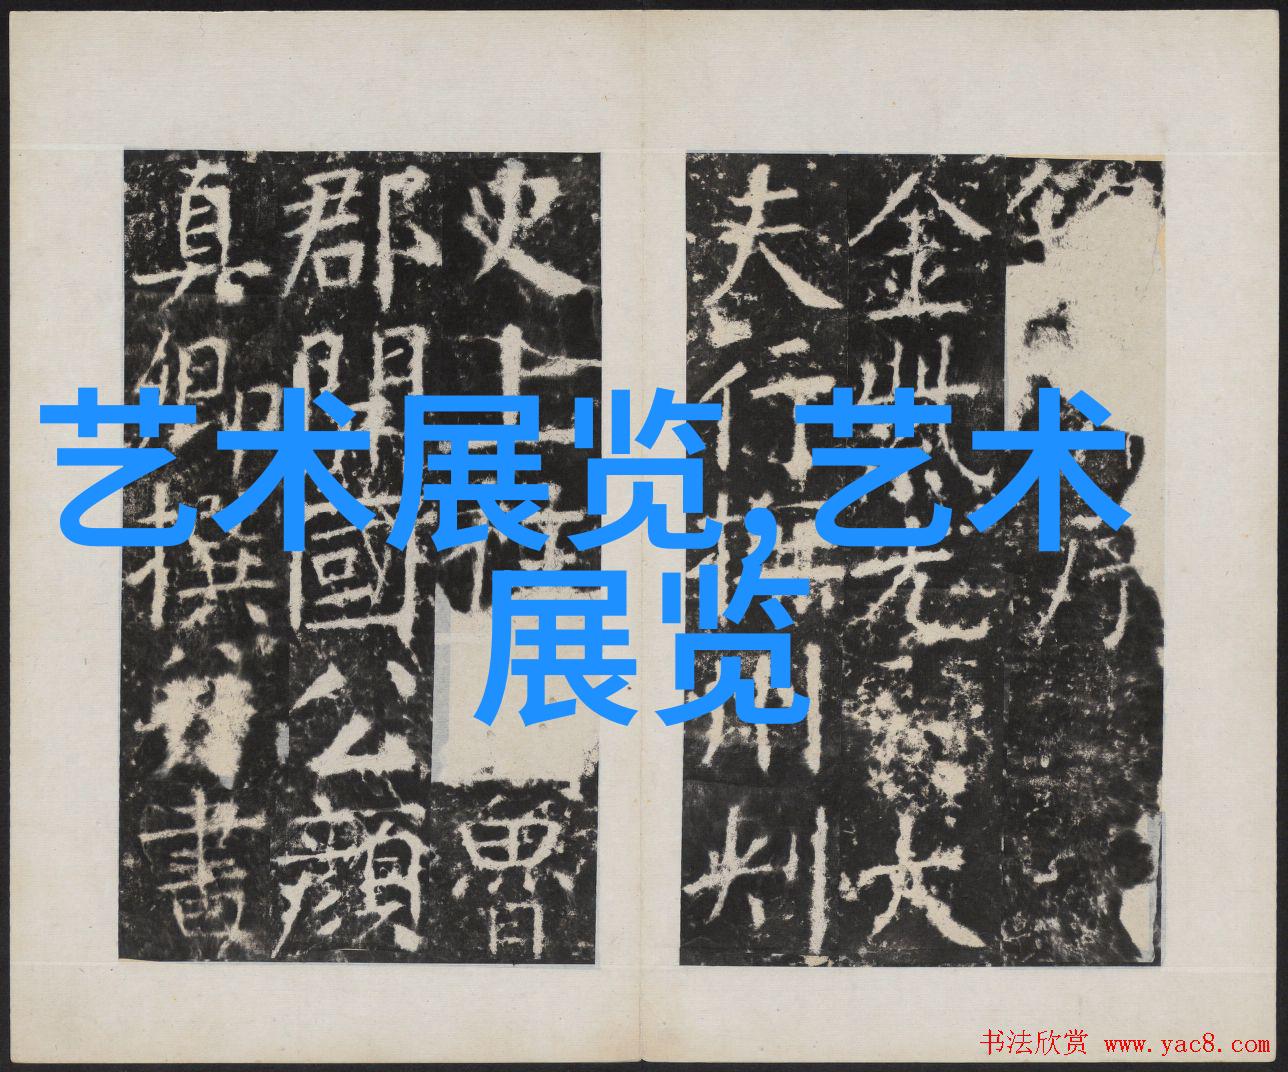 艺术展览,艺术
展览
金紫光大
夫行撫州刺
史上柱魯
郡開國公顏
真卿撰書
书法欣赏 www.yac8.com